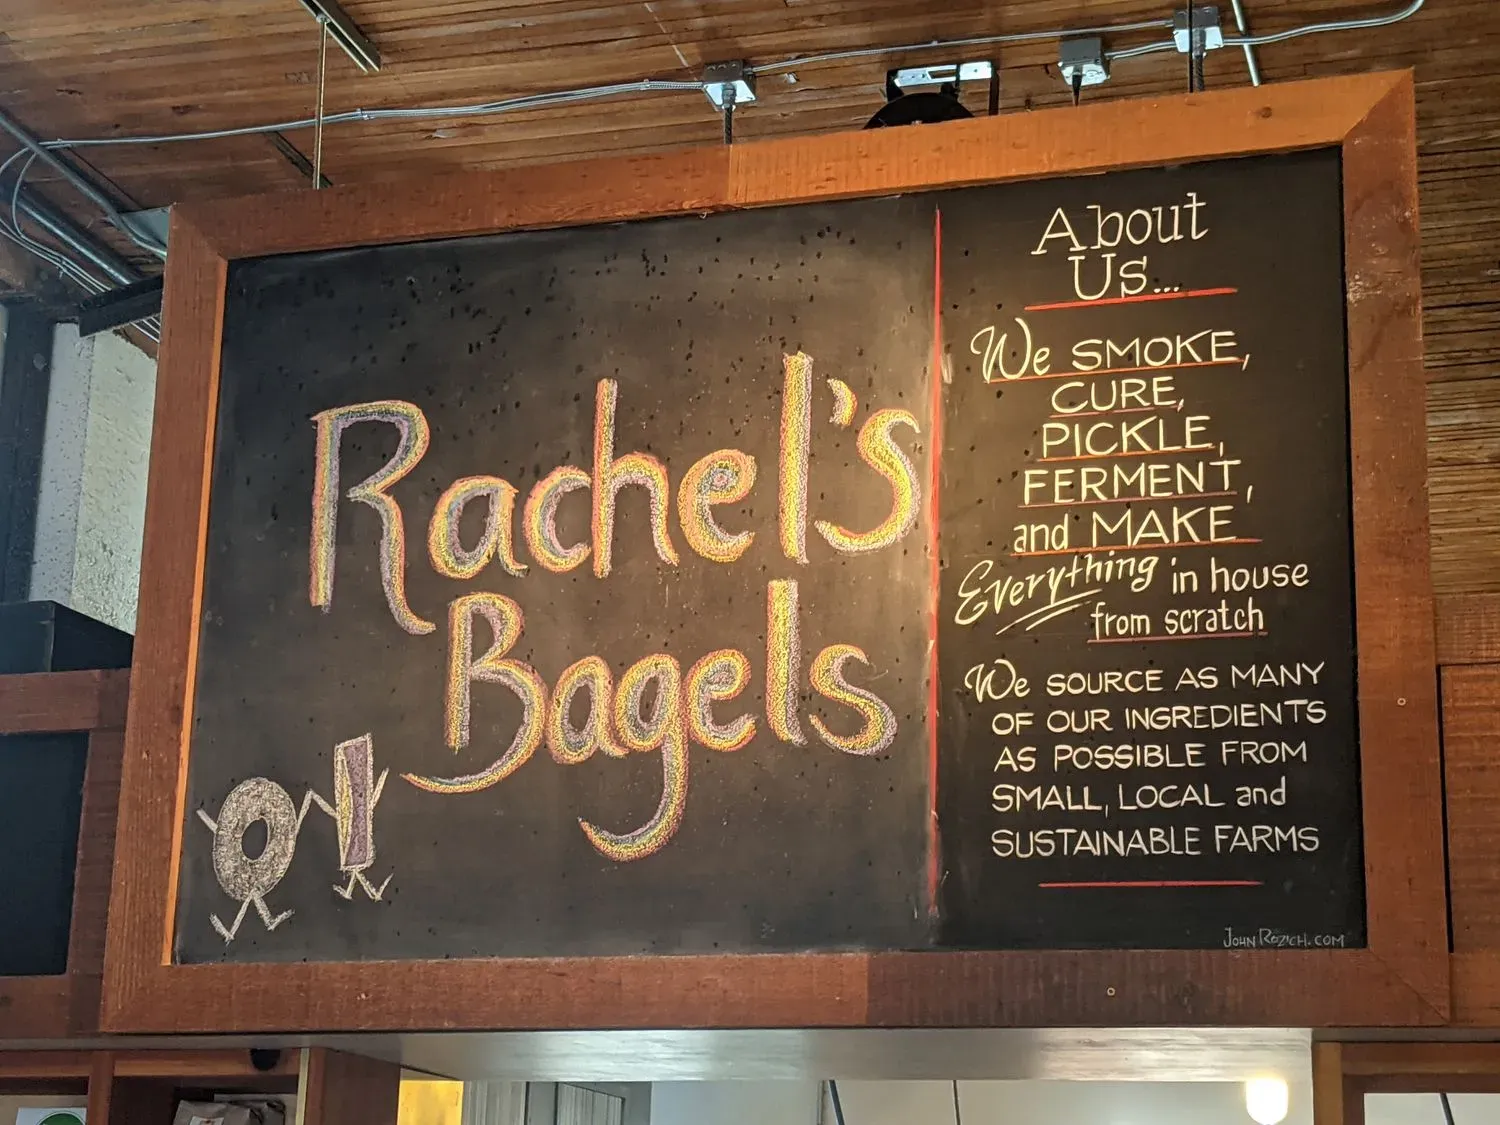 Rachel's
Bagels
About
Us...
We SMOKE,
CURE,
PICKLE,
FERMENT,
and MAKE
Everything in house
from scratch
We SOURCE AS MANY
OF OUR INGREDIENTS
AS POSSIBLE FROM
SMALL, LOCAL and
SUSTAINABLE FARMS
JOHN ROZICH.COM